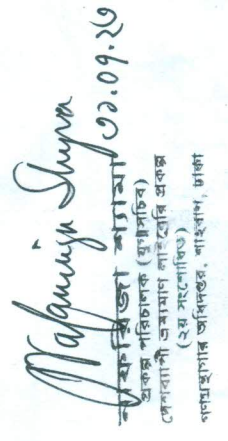 ৩১.০৭.২৩
প্রকল্প পরিচালক (যুগ্মসচিব)
দেশব্যাপী ভ্রাম্যমাণ লাইব্রেরি প্রকল্প
(২য় সংশোধিত)
গণগ্রন্থাগার অধিদপ্তর, শাহবাগ, ঢাকা